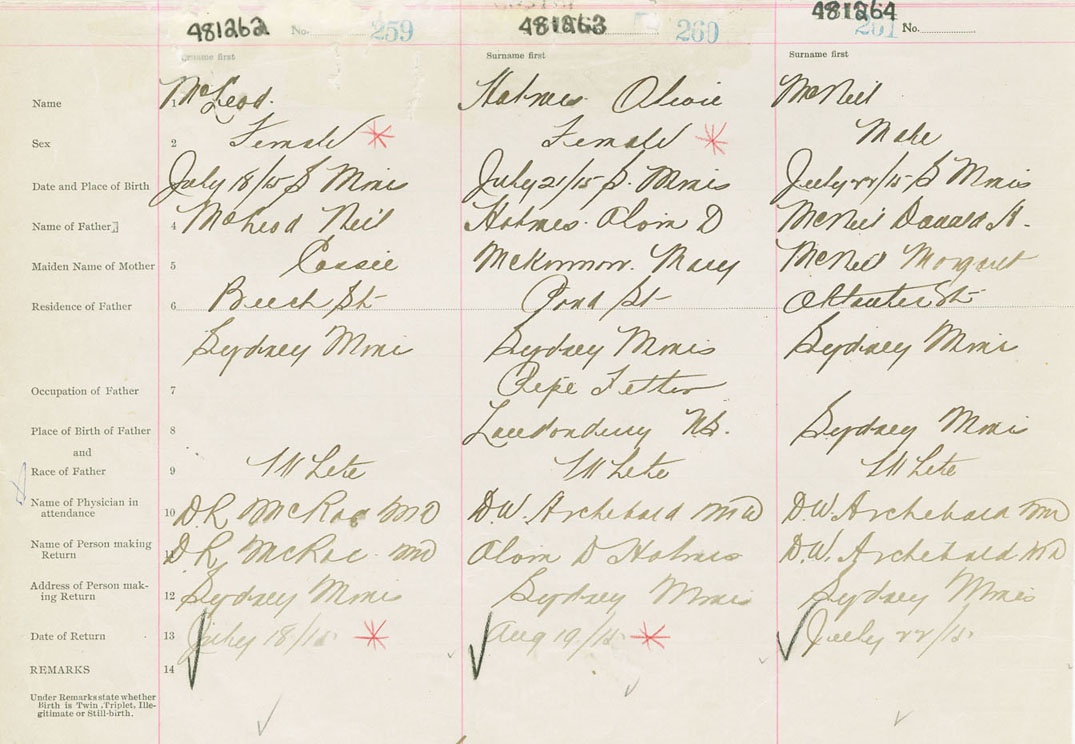 481262 No. 259 481263 260 481264 261 No.
Surname first Surname first Surname first
Name 1 McLeod. Holmes Olivie McNeil
Sex 2 Female Female Male
Date and Place of Birth July 18/15 S Mines July 21/15 S. Mines July 22/15 S Mines
Name of Father 4 McLeod Neil Holmes Alvin D McNeil Donald H.
Maiden Name of Mother 5 Cassie McKinnon. Mary McNeil Margaret
Residence of Father 6 Beech St Pond St Atlantic St
Sydney Mines Sydney Mines Sydney Mines
Occupation of Father 7 Pipe Fitter
Place of Birth of Father 8 Londonderry N.S. Sydney Mines
and
Race of Father 9 White White White
Name of Physician in
attendance 10 D.R McRae MD D.W. Archibald MD D.W. Archibald MD
Name of Person making
Return 11 D.R McRae. MD Alvin D Holmes D.W. Archibald MD
Address of Person mak-
ing Return 12 Sydney Mines Sydney Mines Sydney Mines
Date of Return 13 July 18/15 Aug 19/15 July 22/15.
REMARKS 14
Under Remarks state whether
Birth is Twin, Triplet, Ille-
gitimate or Still-birth.